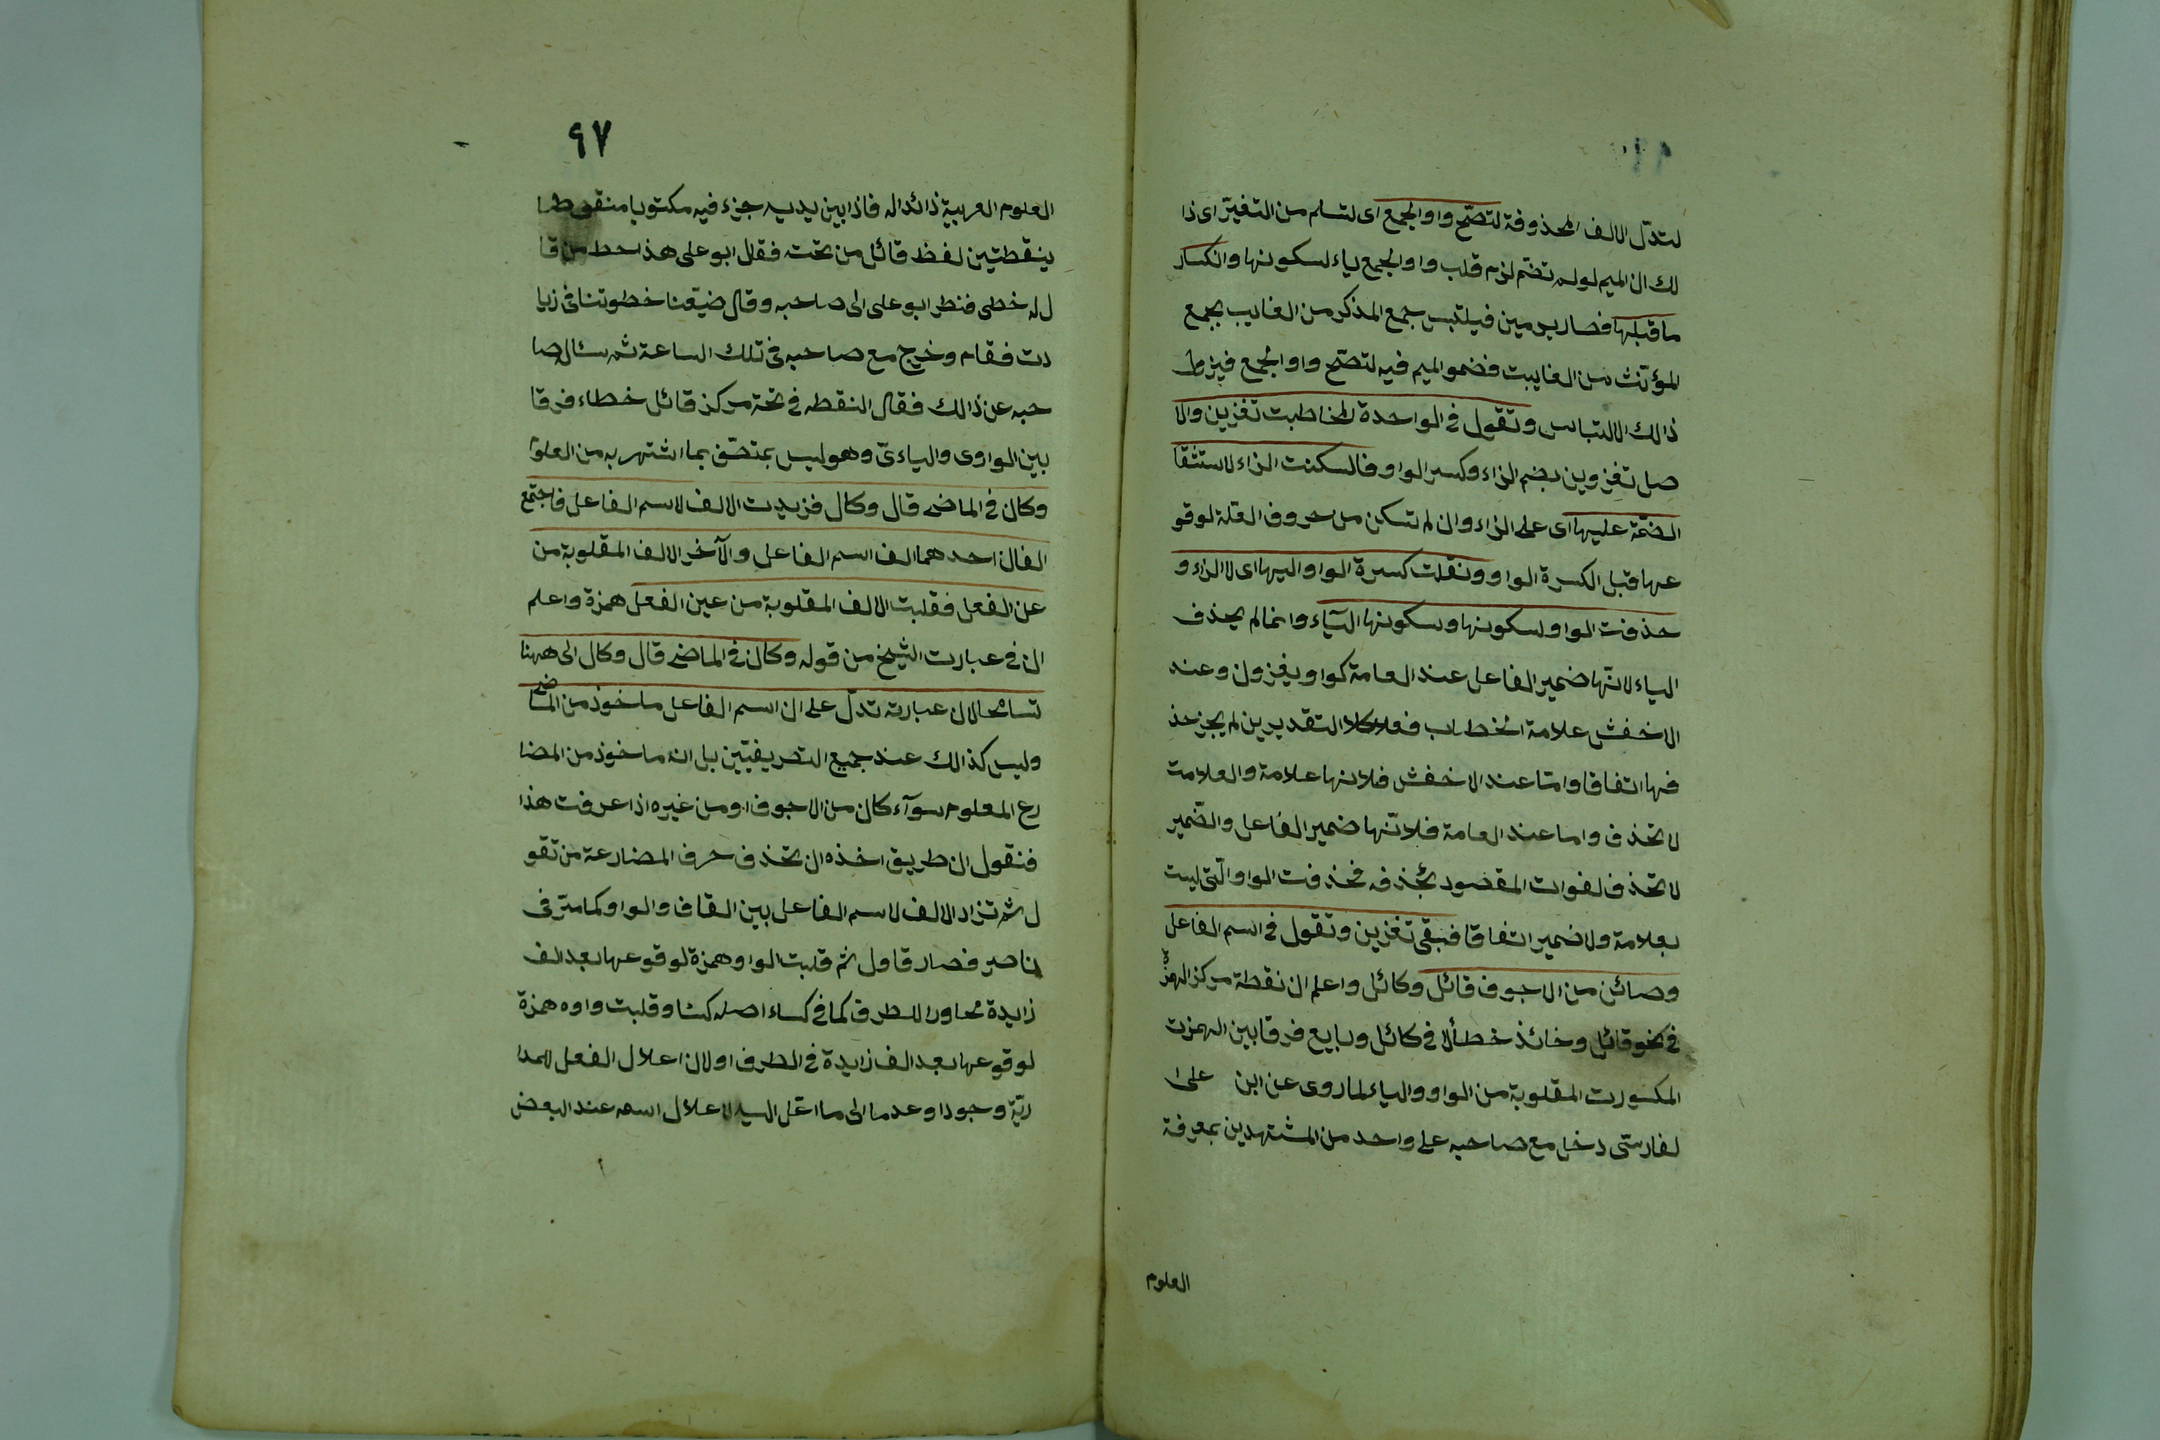 لتدل الالف المحذوفة لتصحّ واو الجمع اى لتسلم من التغيّر اى ذا
لك ان الميم لو لم تضم لزم قلب واو الجمع ياء لسكونها وانكسار
ما قبلها فصار يرمين فيلتبس جمع المذكر من الغايب بجمع
المؤنّث من الغايبت فضمو الميم فيه لتصحّ واو الجمع فيزول
ذالك الالتباس وتقول فى الواحدة المخاطبت تغزين والا
صل تغزوين بضم الزاء وكسر الواو فاسكنت الزاء لاستثقا
الضمّة عليها اى على الزاء وان لم تسكن من حروف العلة لوقو
عها قبل الكسرة الواو ونقلت كسرة الواو اليها اى لا الزاء و
حذفت الواو لسكونها وسكونها الياء وانما لم يحذف
الياء لانّها ضمير الفاعل عند العامة كواو يغزون وعند
الاخفش علامة الخطاب فعلا كلا التقديرين لم يجز حذ
فها اتفاقا وامّا عند الاخفش فلانها علامة والعلامت
لا تحذف واما عند العامة فلانّها ضمير الفاعل والضمير
لا تحذف لفوات المقصود بحذفه فحذفت الواو الّتى ليست
بعلامة ولا ضمير اتفاقا فبقى تغزين وتقول فى اسم الفاعل
وصائن من الاجوف قائل وكائل واعلم ان نقطة مركز الهمزة
فى نحو قائل وخائذ خطألا فى كائل وبايع فرقا بين الهمزت
المكسورت المقلوبة من الواو والياء لما روى عن ابن على ا
لفارستى دخل مع صاحبه على واحد من المشتهدين بمعرفة
العلوم
٩٧
العلوم العربية ذائداله فاذا بين يديه جزء فيه مكتوبا منقوطا
بنقطتين لفظ قائل من تحته فقال ابو على هذا حط من قا
ل له خطى فنظر ابو على الى صاحبه وقال ضيّعنا خطوتنا فى زيا
دت فقام وخرج مع صاحبه فى تلك الساعة ثم سئال صا
حبه عن ذالك فقال النقطه فى تحة مركز قائل خطاء فرقا
بين الواوى والياءىّ وهو ليس بمتصّف بما اشتهر به من العلوم
وكان فى الماضى قال وكال فزيدت الالف لاسم الفاعل فاجتمع
الفان احدهما الف اسم الفاعل والآخر الالف المقلوبة من
عن الفعل فقلبت الالف المقلوبة من عين الفعل همزة واعلم
ان فى عبارت الشيخ من قوله وكان فى الماضى قال وكال الى ههنا
تسامحا لان عبارته تدلّ على ان اسم الفاعل ماخوذ من الماضى
وليس كذالك عند جميع التصريفيّين بل انه ماخوذ من المضا
رع المعلوم سوآء كان من الاجوف او من غيره اذا عرفت هذا
فنقول ان طريق اخذه ان تحذف حرف المضارعة من تقو
ل ثم تزاد الالف لاسم الفاعل بين القاف والواو كما مرّ فى
ناصر فصار قاول ثم قلبت الواو همزة لوقوعها بعد الف
زايدة مجاور اللطرق كما فى كساء اصله كسا وقلبت واوه همزة
لوقوعها بعد الف زايدة فى الطرف اولان اعلال الفعل للمدا
ريّة وجودا وعدما الى ما اعل اليه لاعلال اسمه عند البعض